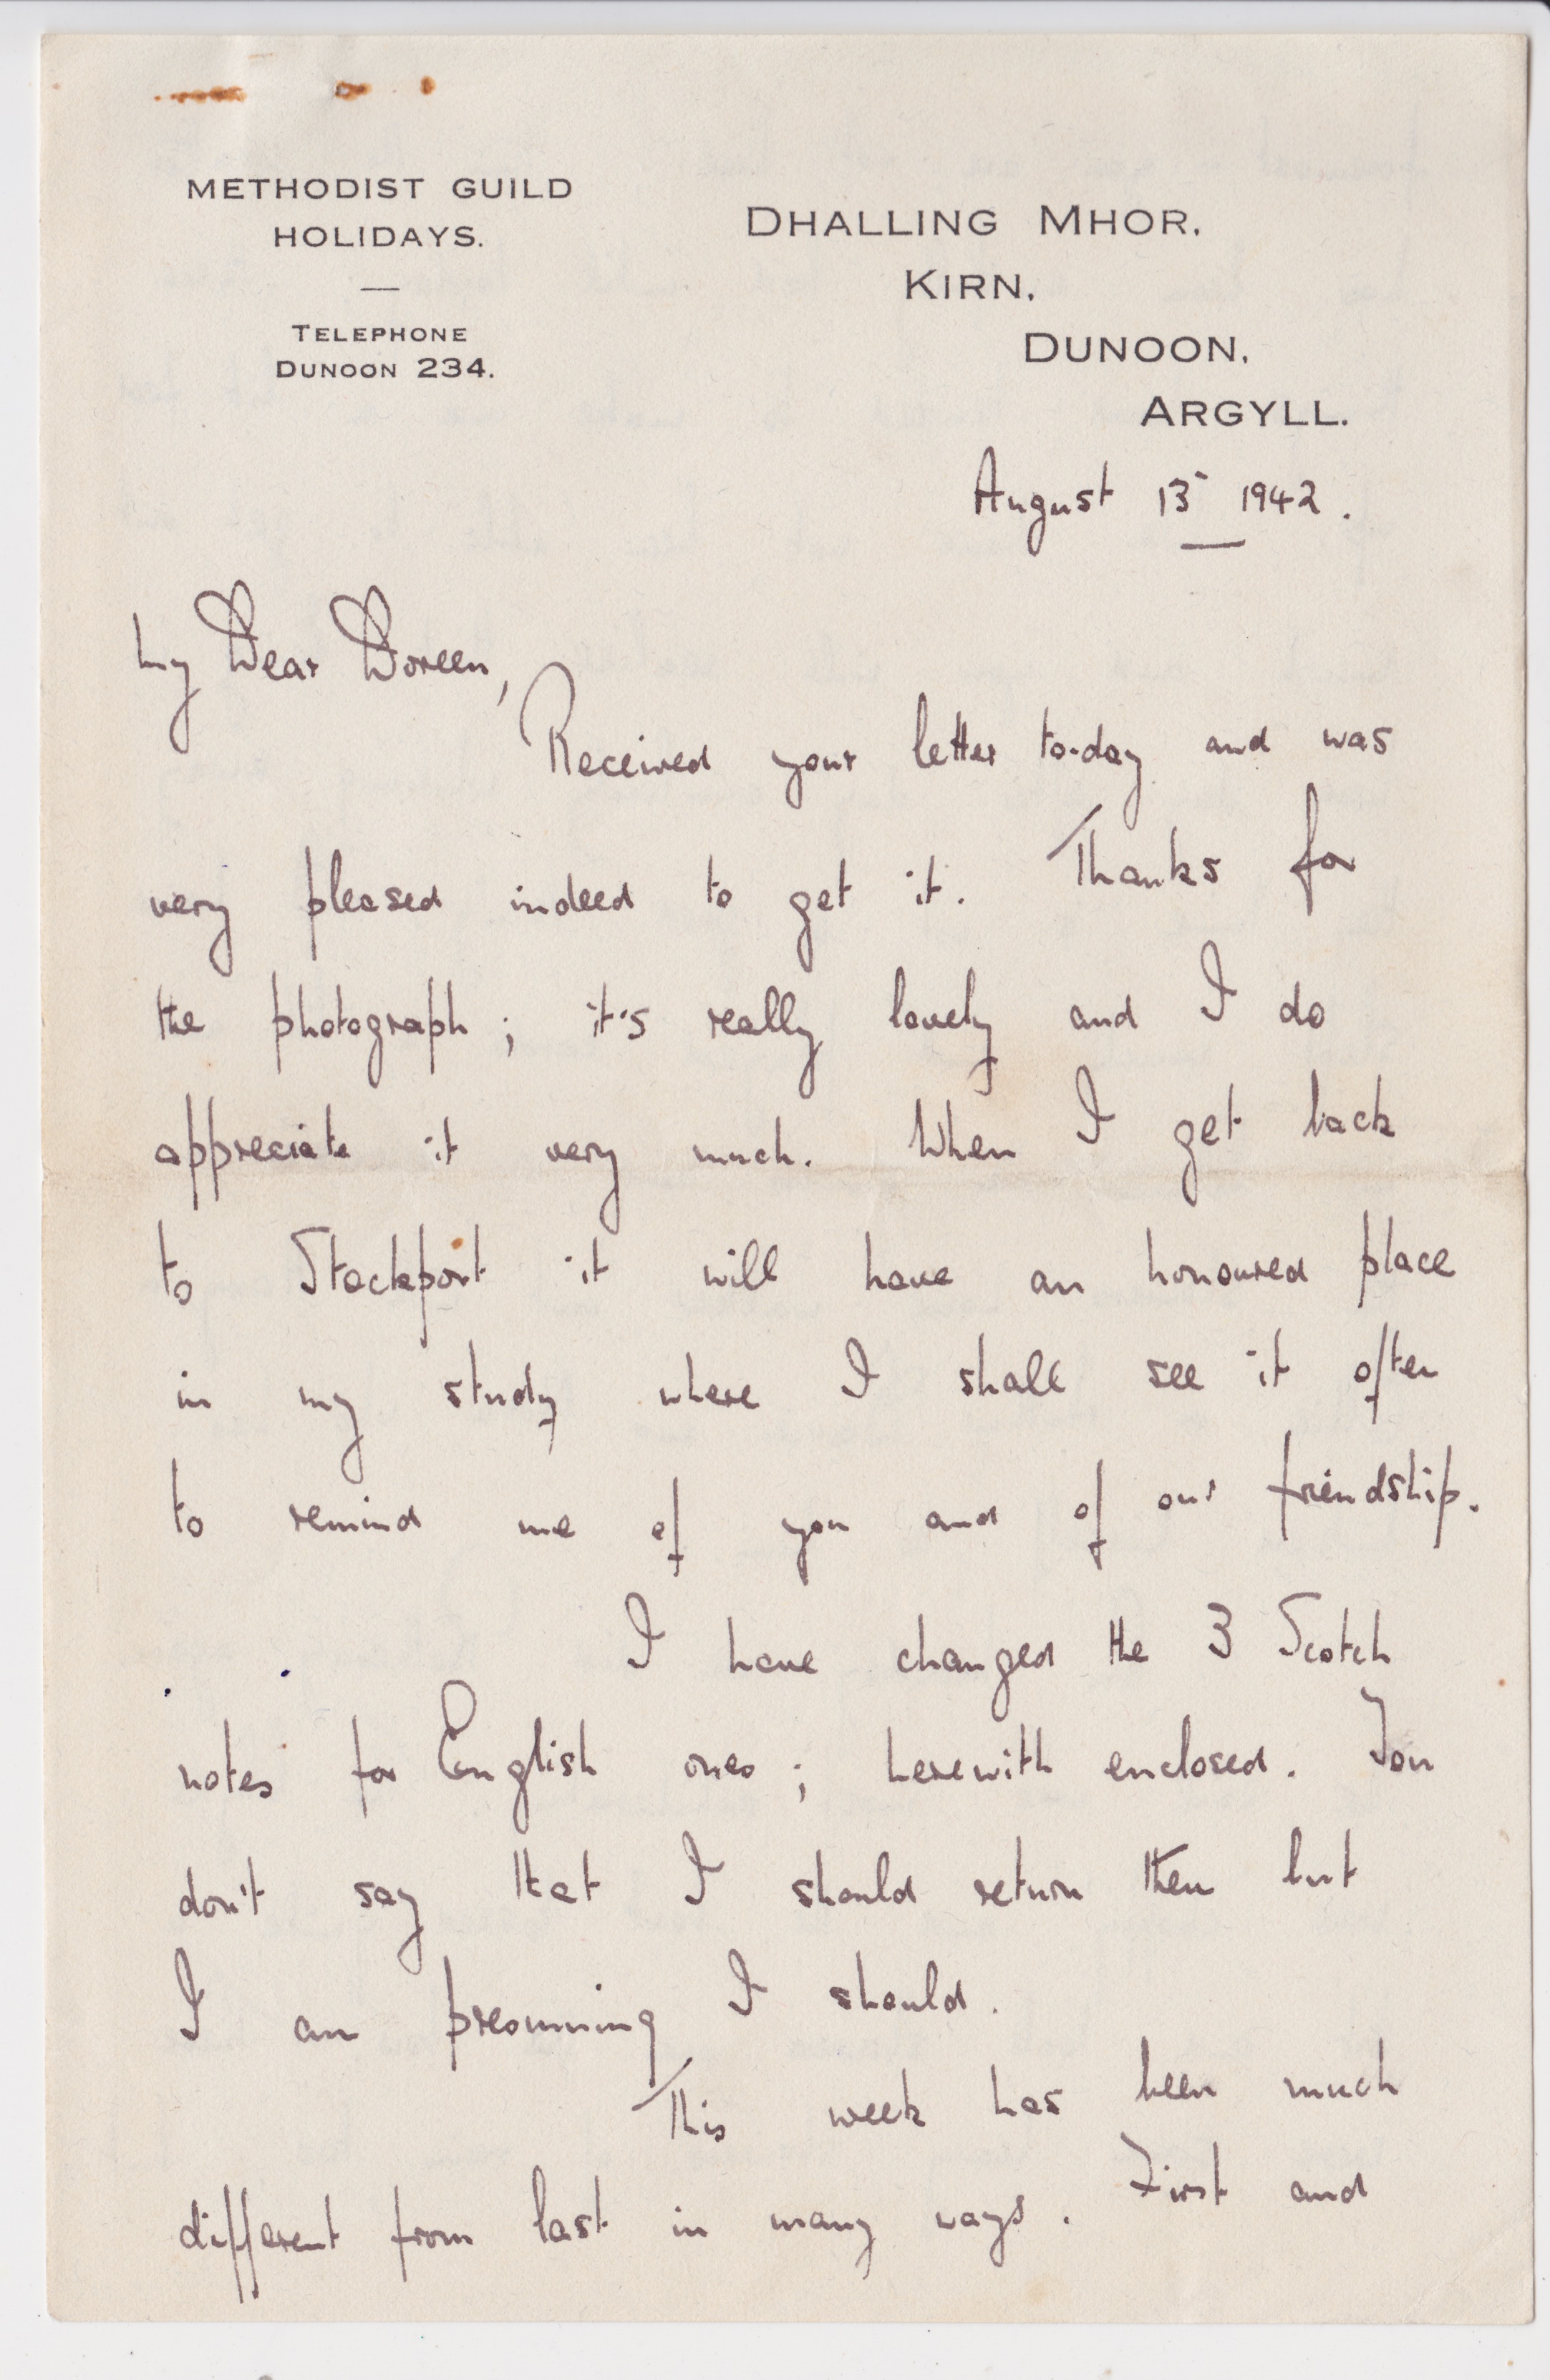 METHODIST GUILD
HOLIDAYS.
—
TELEPHONE
DUNOON 234.
DHALLING MHOR,
KIRN,
DUNOON,
ARGYLL.
August 13 1942.
My Dear Doreen,
Received your letter to-day and was
very pleased indeed to get it. Thanks for
the photograph; it's really lovely and I do
appreciate it very much. When I get back
to Stockport it will have an honoured place
in my study where I shall see it often
to remind me of you and of our friendship.
I have changed the 3 Scotch
notes for English ones; herewith enclosed. You
don't say that I should return them but
I am presuming I should.
This week has been much
different from last in many ways. First and